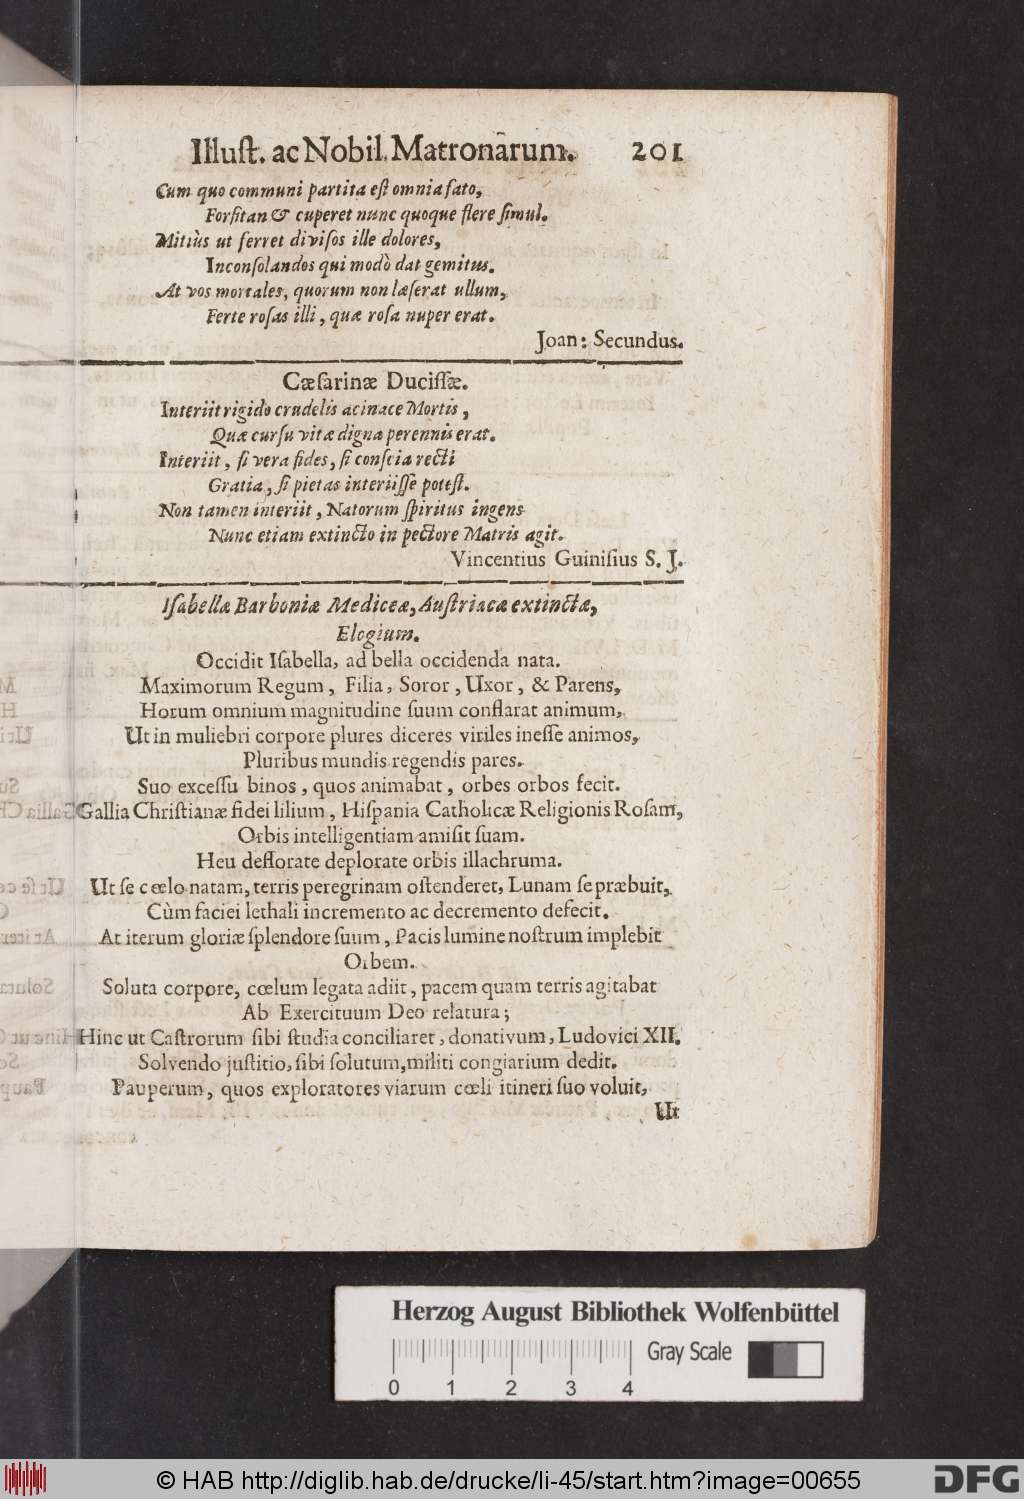 Illuſt. ac Nobil. Matronarum. 201
Cum quo communi partita eſt omnia fato,
Forſitan & cuperet nunc quoque flere ſimul.
Mitiùs ut ferret diviſos ille dolores,
Inconſolandos qui modò dat gemitus.
At vos mortales, quorum non læſerat ullum,
Ferte roſas illi, quæ roſa nuper erat.
Joan: Secundus.
Cæſarinæ Duciſſæ.
Interiit rigido crudelis acinace Mortis,
Quæ curſu vitæ digna perennis erat.
Interiit, ſi vera fides, ſi conſcia recti
Gratia, ſi pietas interiiſſe poteſt.
Non tamen interiit, Natorum ſpiritus ingens
Nunc etiam extincto in pectore Matris agit.
Vincentius Guiniſius S. J.
Iſabellæ Barboniæ Mediceæ, Auſtriacæ extinctæ,
Elogium.
Occidit Iſabella, ad bella occidenda nata.
Maximorum Regum, Filia, Soror, Uxor, & Parens,
Horum omnium magnitudine ſuum conflarat animum,
Ut in muliebri corpore plures diceres viriles ineſſe animos,
Pluribus mundis regendis pares.
Suo exceſſu binos, quos animabat, orbes orbos fecit.
Gallia Chriſtianæ fidei lilium, Hiſpania Catholicæ Religionis Roſam,
Orbis intelligentiam amiſit ſuam.
Heu deflorate deplorate orbis illachruma.
Ut ſe cœlo natam, terris peregrinam oſtenderet, Lunam ſe præbuit,
Cùm faciei lethali incremento ac decremento defecit.
At iterum gloriæ ſplendore ſuum, Pacis lumine noſtrum implebit
Orbem.
Soluta corpore, cœlum legata adiit, pacem quam terris agitabat
Ab Exercituum Deo relatura;
Hinc ut Caſtrorum ſibi ſtudia conciliaret, donativum, Ludovici XII.
Solvendo juſtitio, ſibi ſolutum, militi congiarium dedit.
Pauperum, quos exploratores viarum cœli itineri ſuo voluit,
Ut
Herzog August Bibliothek Wolfenbüttel
Gray Scale
0 1 2 3 4
© HAB http://diglib.hab.de/drucke/li-45/start.htm?image=00655
DFG